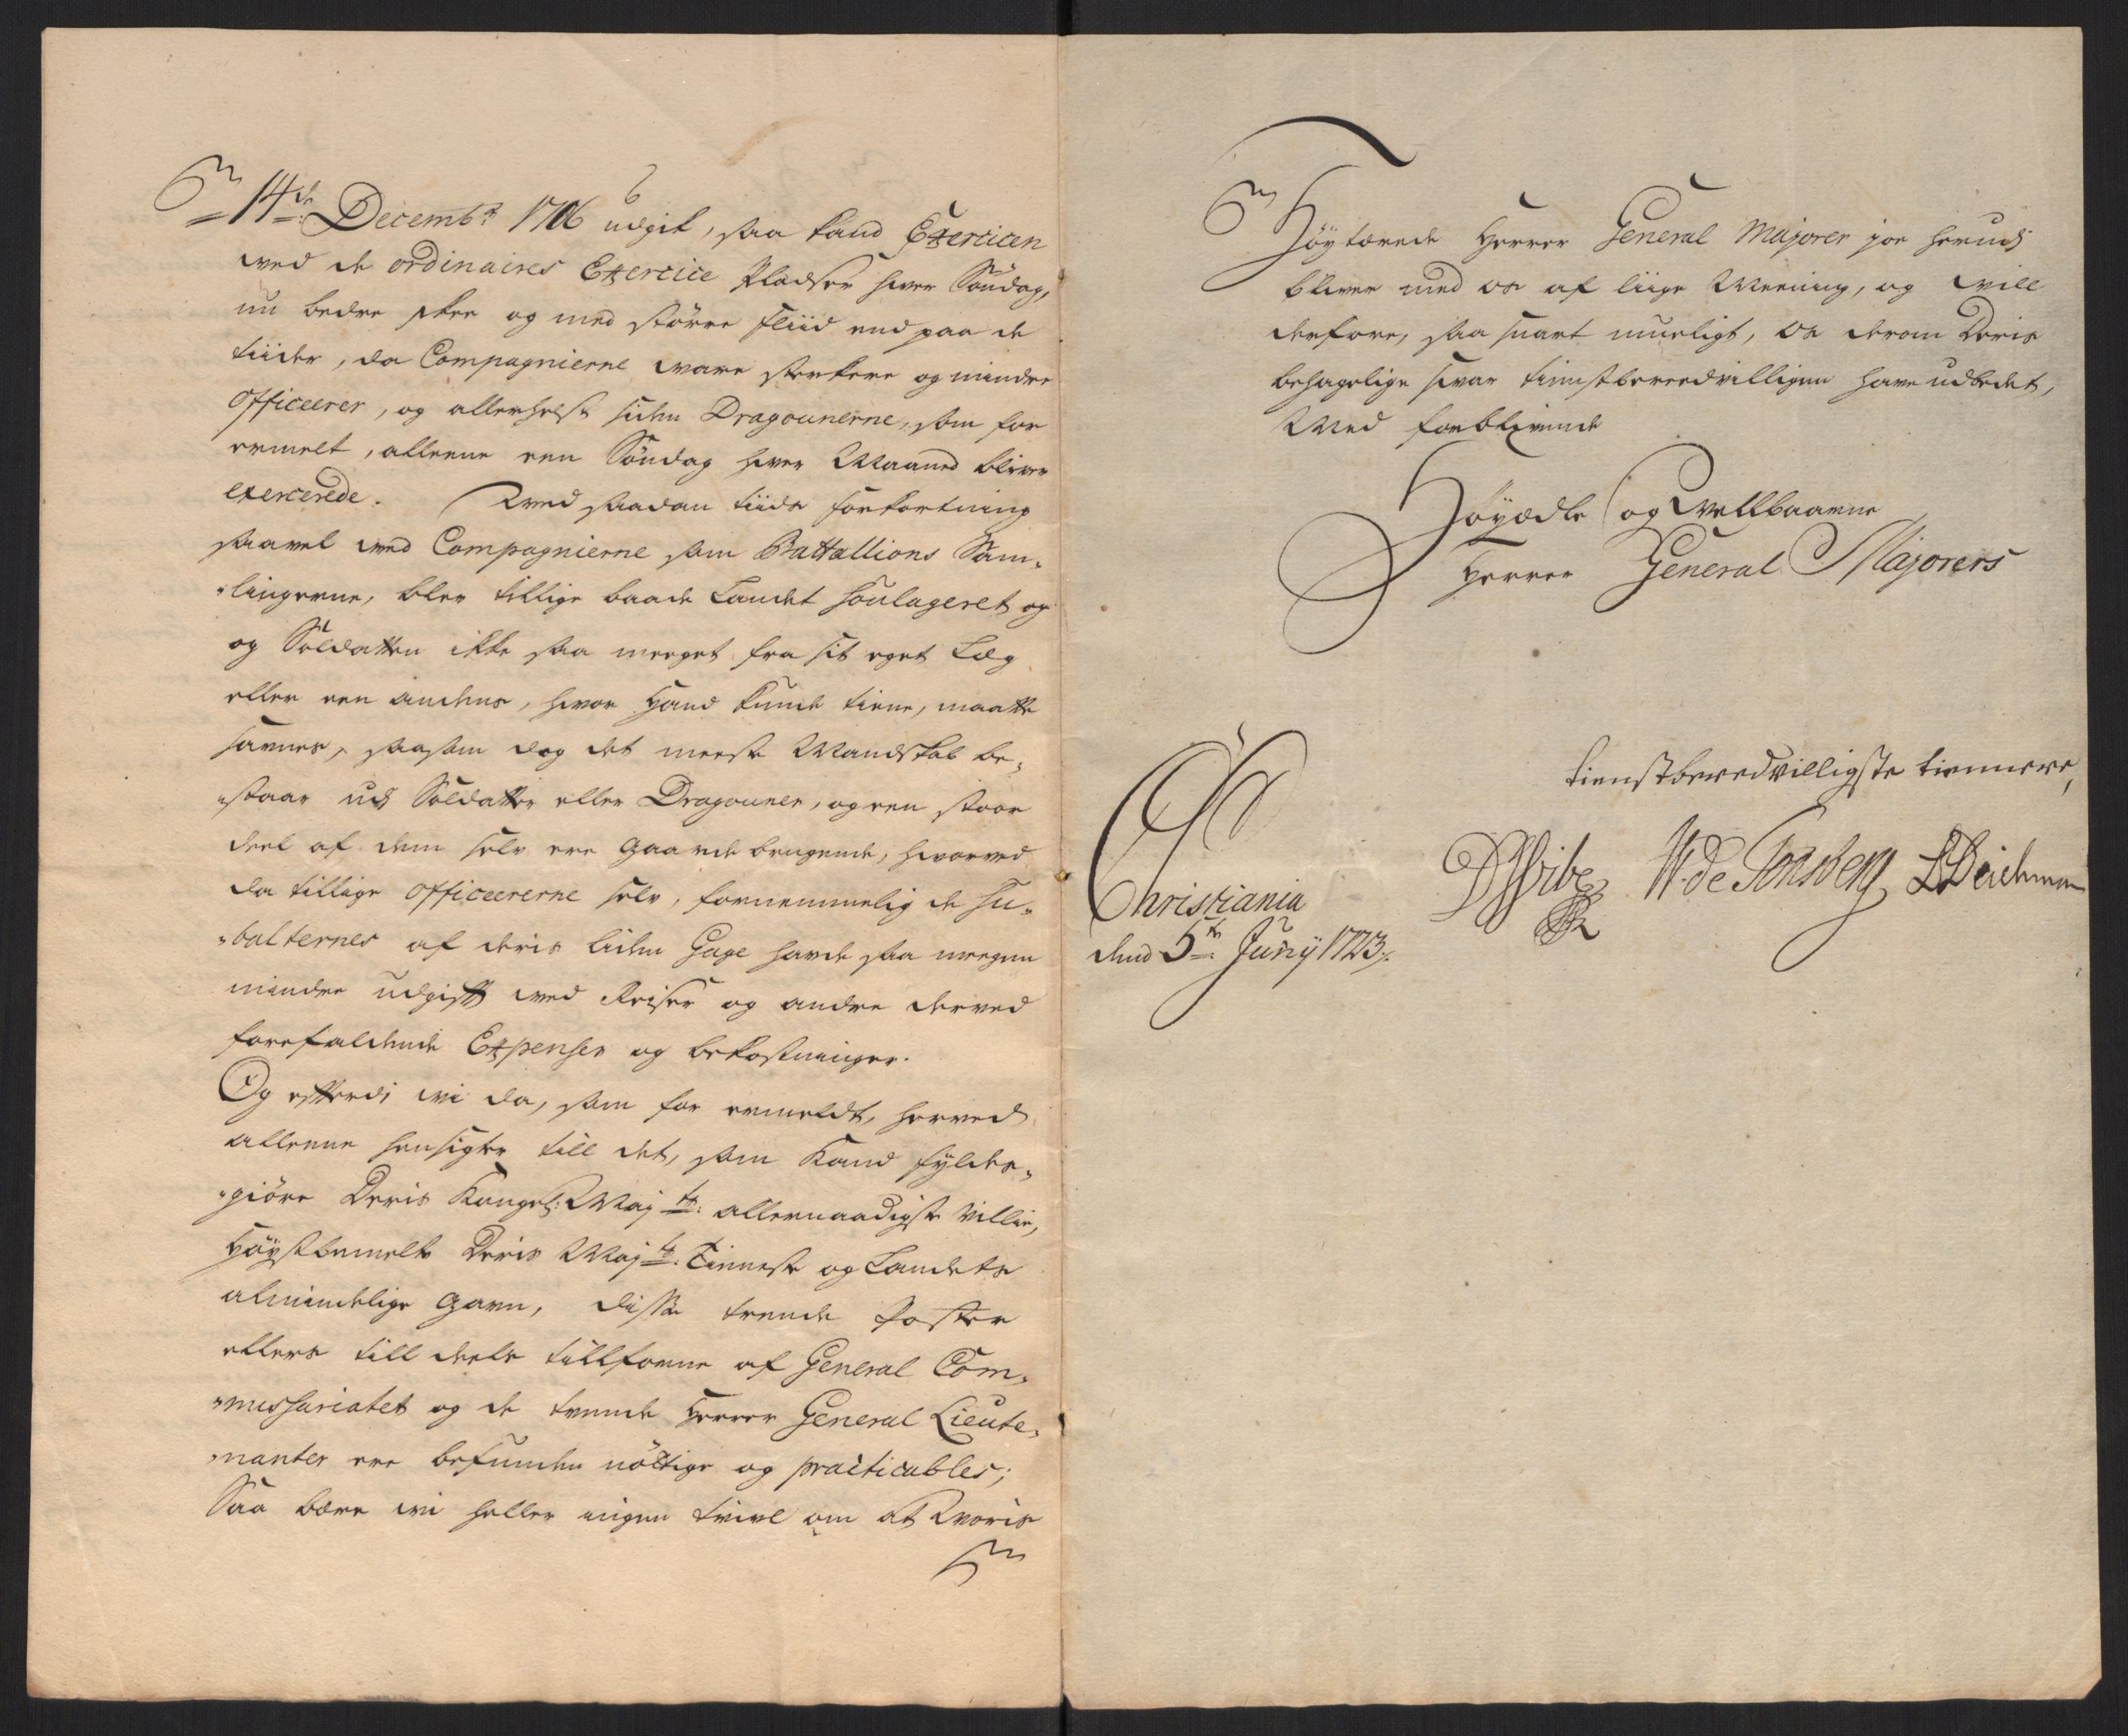 14de Decembr 1706 udgik, saa kand Exercicen
ved de ordinaires Exercice Pladser hver Søndag,
nu bedre skee og med større fliid end paa de
tiider, da Compagnierne vare sterkere og mindre
Officeerer, og allerhelst siden Dragounerne, som for
ermelt, alleene een Søndag hver Maaned bliver
exercerede. Ved saadan tiids forkortning
saavel ved Compagnierne som Battallions Sam-
lingerne, blev tillige baade Landet soulageret og
og Soldatten ikke saa meeget fra sit eget Læg
eller een andens, hvor Hand kunde tiene, maatte
savnes, saasom dog det meeste Mandskab be-
staar udj Soldatter eller Dragouner, og een stoor
deel af dem selv ere gaardebrugende, hvorved
da tillige Officeererne selv, fornemmelig de su-
balternes af deris liden Gage havde saa meegen
mindre udgift ved Reiser og andre derved
forefaldende Expenser og bekostninger.
Og efterdj vi da, som for ermeldt, herved
alleene hensigter till det, som Kand fyldes-
giøre Deris Kongel: Majts: allernaadigste Villie,
Høystbemelte Deris Majts: Tienneste og Landets
almindelige Gavn, disse trende Poster
ellers till deels tillforne af General Com-
missariatet og de tvende Herrer General Lieute-
nanter ere befunden nöttige og practicables;
Saa bære vi heller ingen tvivl om at Voris
Høytærede Herrer General Majorer jo herudj
bliver med os af liige Meening, og vill
derfore, saa snart mueligt, os derom Deris
behagelige svar tienstberedvilligen have udbedet,
Med forblivende
Høyædle og Vellbaarne
Herrer General Majorers
tienstberedvilligste tiennere,
Christiania
dend 5te Junÿ 1723
DWibe W. de Tonsberg BDeichman